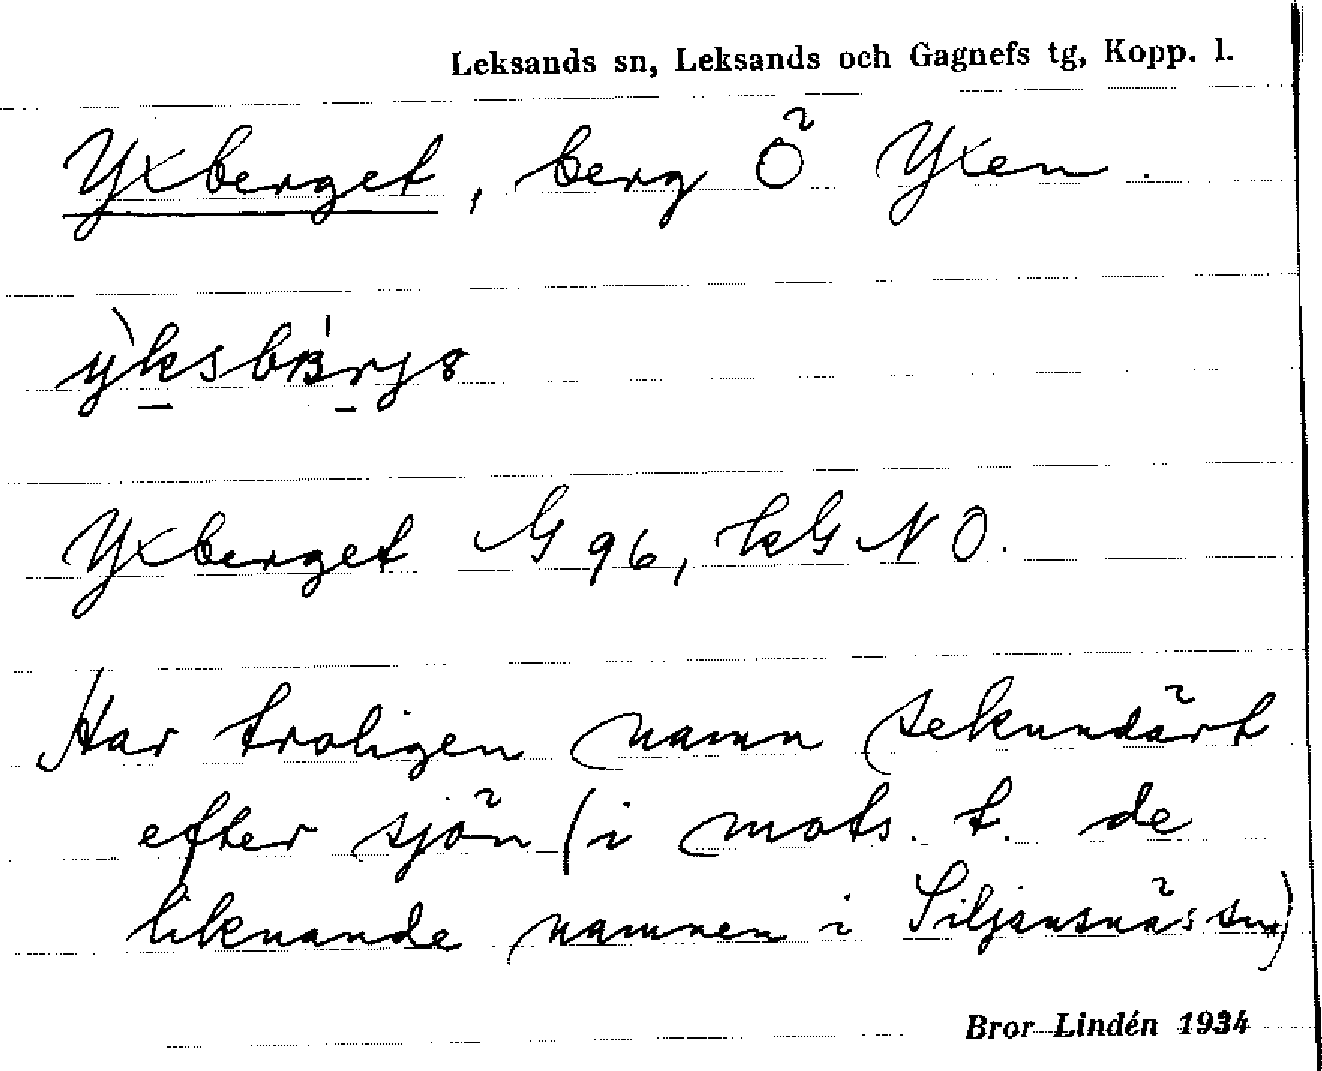 Leksands sn, Leksands och Gagnefs tg, Kopp. l.
Yxberget, berg Ö Yxen.
Yxberget G 96, kG NO.
Har troligen namn sekundärt
efter sjön (i mots. t. de
liknande namnen i Siljansnäs sn)
Bror Lindén 1934